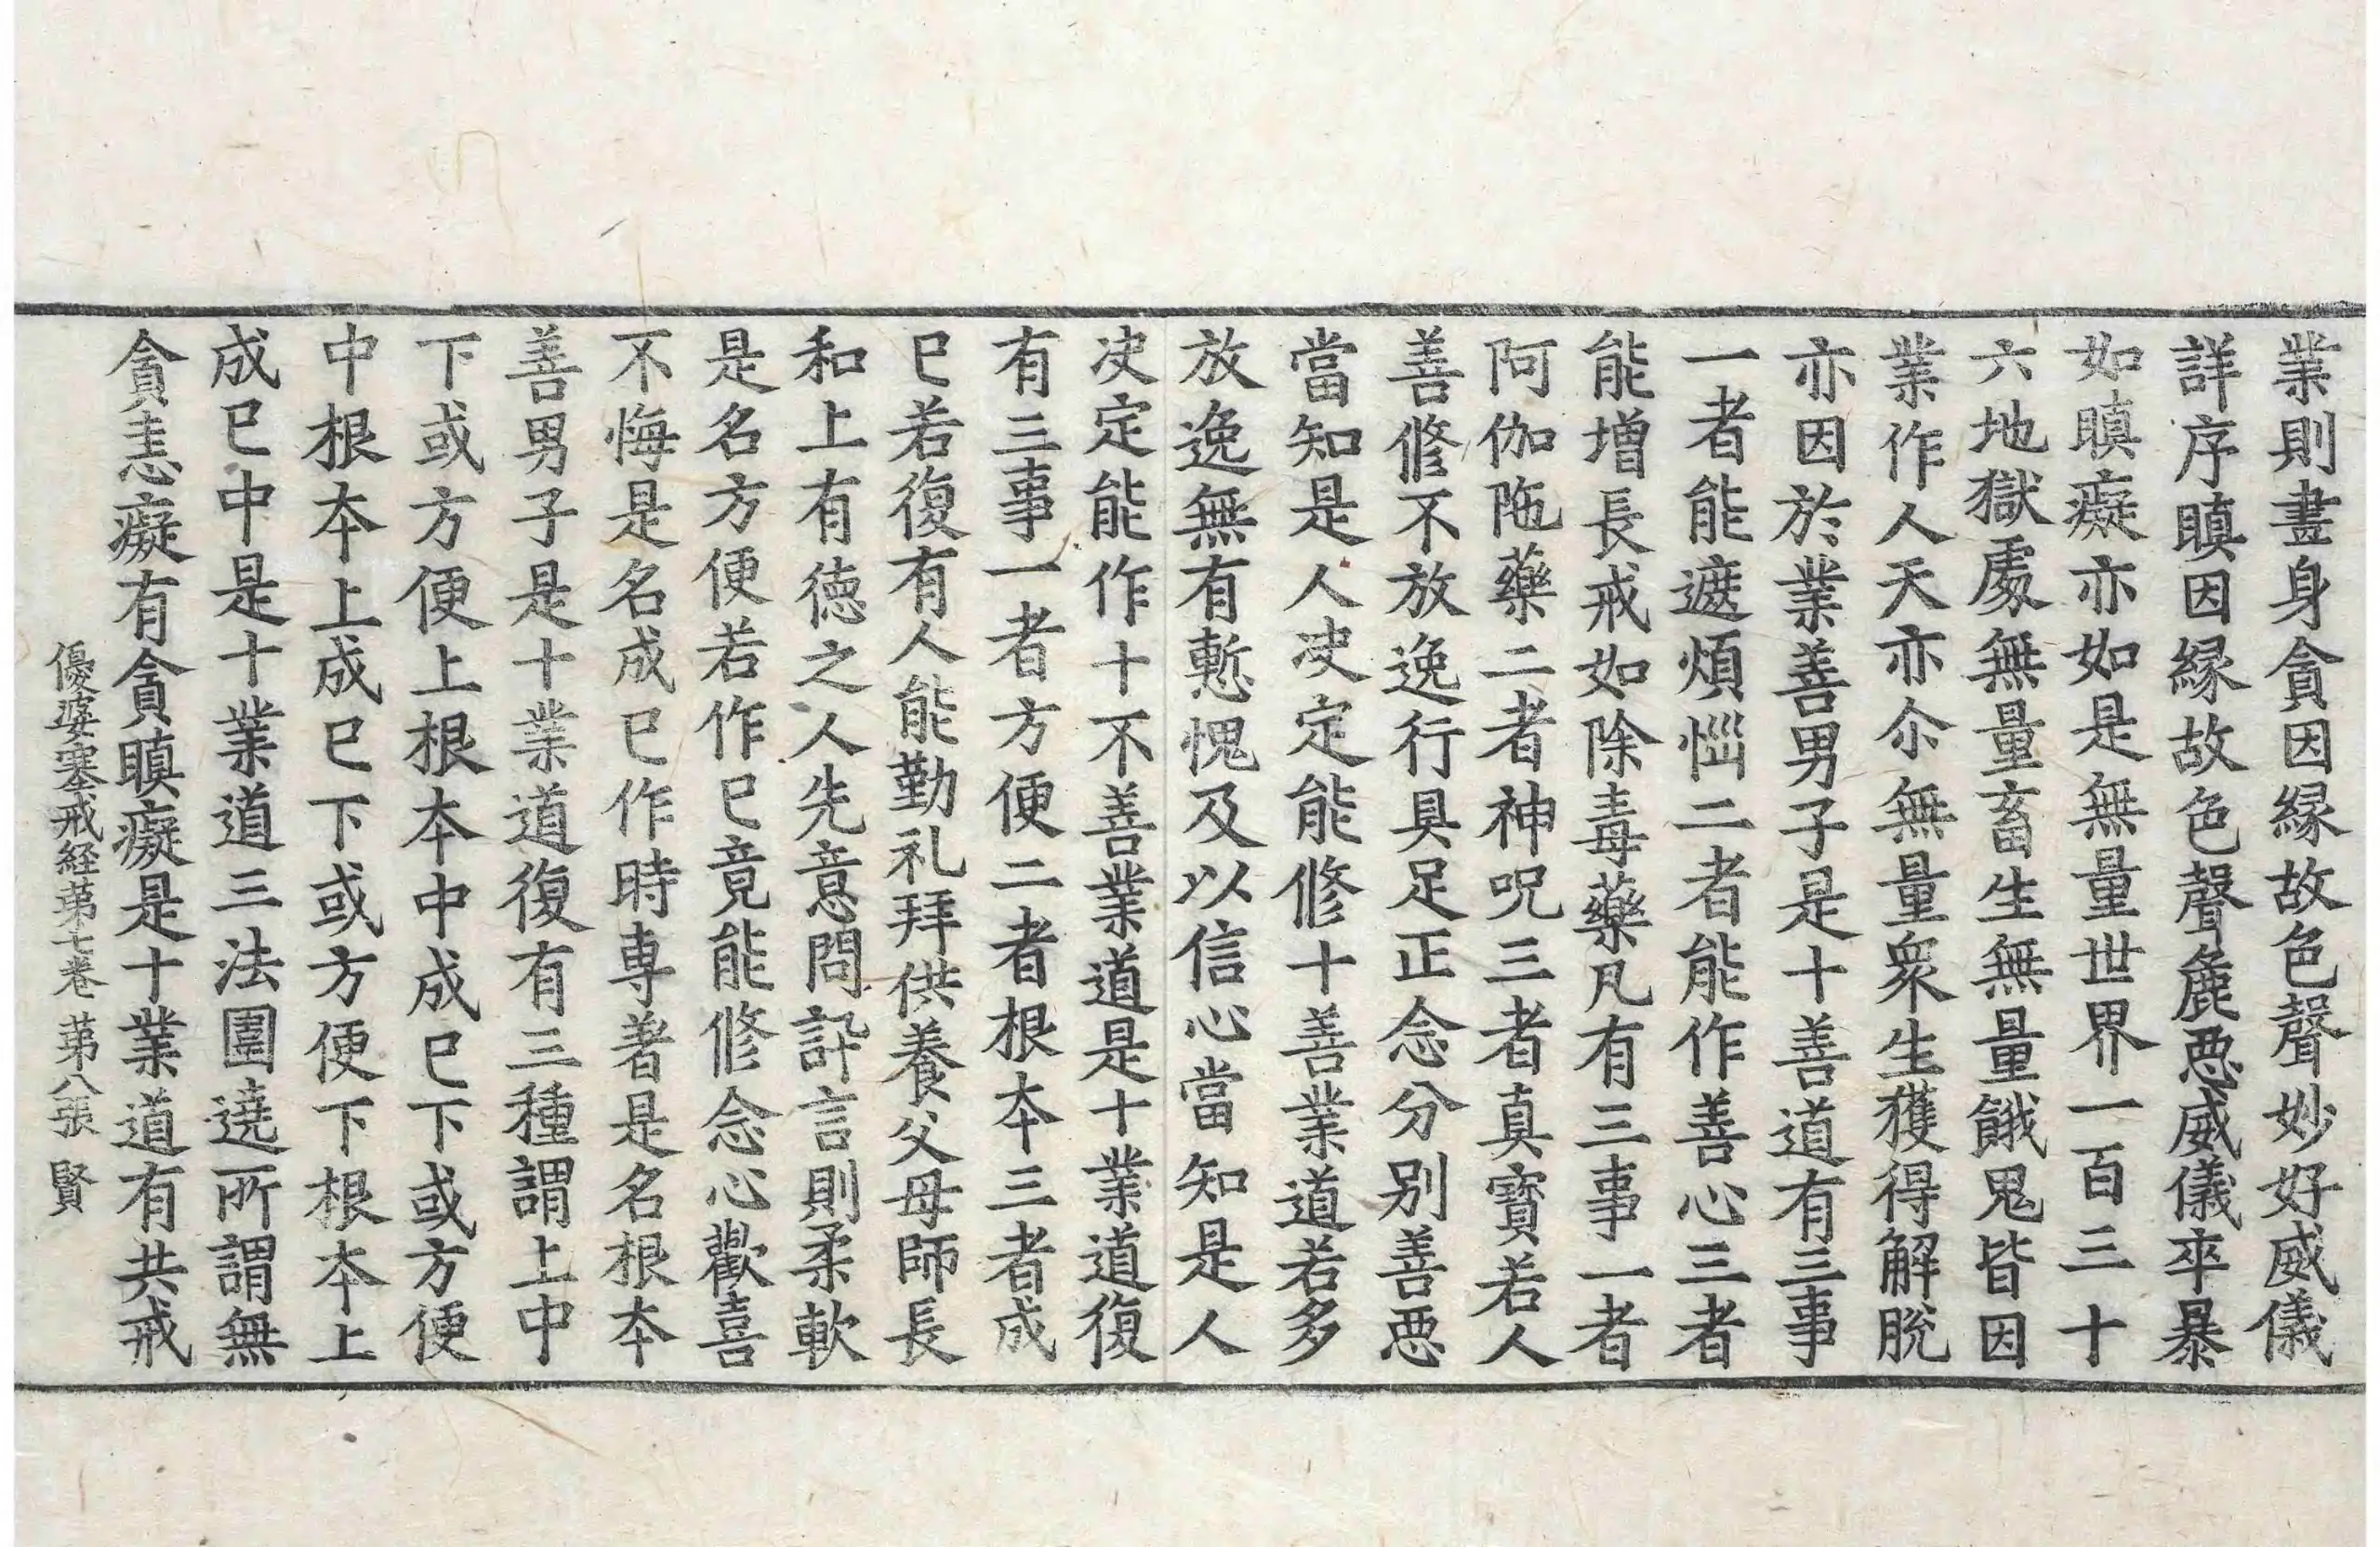 業則盡身貪因縁故色聲妙好威儀
詳序瞋因縁故色聲麁惡威儀卒暴
如瞋癡亦如是無量世界一百三十
六地獄處無量畜生無量餓鬼皆因
業作人天亦尒無量衆生獲得解脫
亦因於業善男子是十善道有三事
一者能遮煩惱二者能作善心三者
能增長戒如除毒藥凡有三事一者
阿伽陁藥二者神呪三者真寶若人
善修不放逸行具足正念分別善惡
當知是人决定能修十善業道若多
放逸無有慙愧及以信心當知是人
决定能作十不善業道是十業道復
有三事一者方便二者根本三者成
已若復有人能勤礼拜供養父母師長
和上有德之人先意問訊言則柔軟
是名方便若作已竟能修念心歡喜
不悔是名成已作時專著是名根本
善男子是十業道復有三種謂上中
下或方便上根本中成已下或方便
中根本上成已下或方便下根本上
成已中是十業道三法圍遶所謂無
貪恚癡有貪瞋癡是十業道有共戒
優婆塞戒経第七卷 第八張 賢